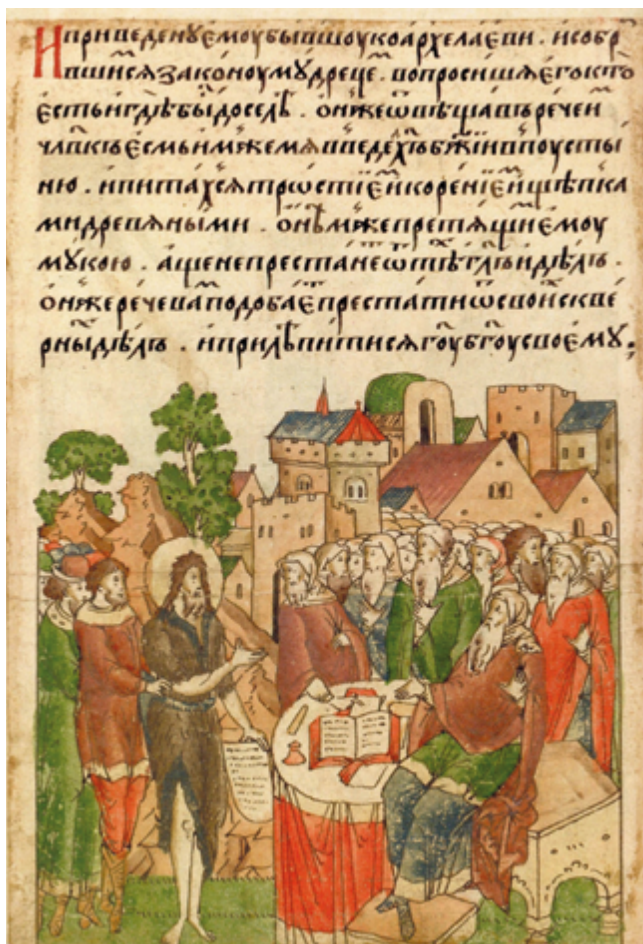 Иприведенуемоубывшоукоархелаеви . исобр
вшисѧзаконоумудреце . вопросишѧегокто
естьигдѣбыдоселѣ . онжеѡвѣщавъречеи
члвкъесмьимжемѧвведехъбжіивпоусты
ню . ипитахсѧтрѡстіеикореніеищѣпка
мидревѧными . онѣмжепретѧщиемоу
мукою . ащенепрестанеѿтѣглъидѣлъ .
онжеречевапⷣобаепрестатиѿсвоискве
рныдѣлъ . иприлѣпитисѧгоубгоусвоему